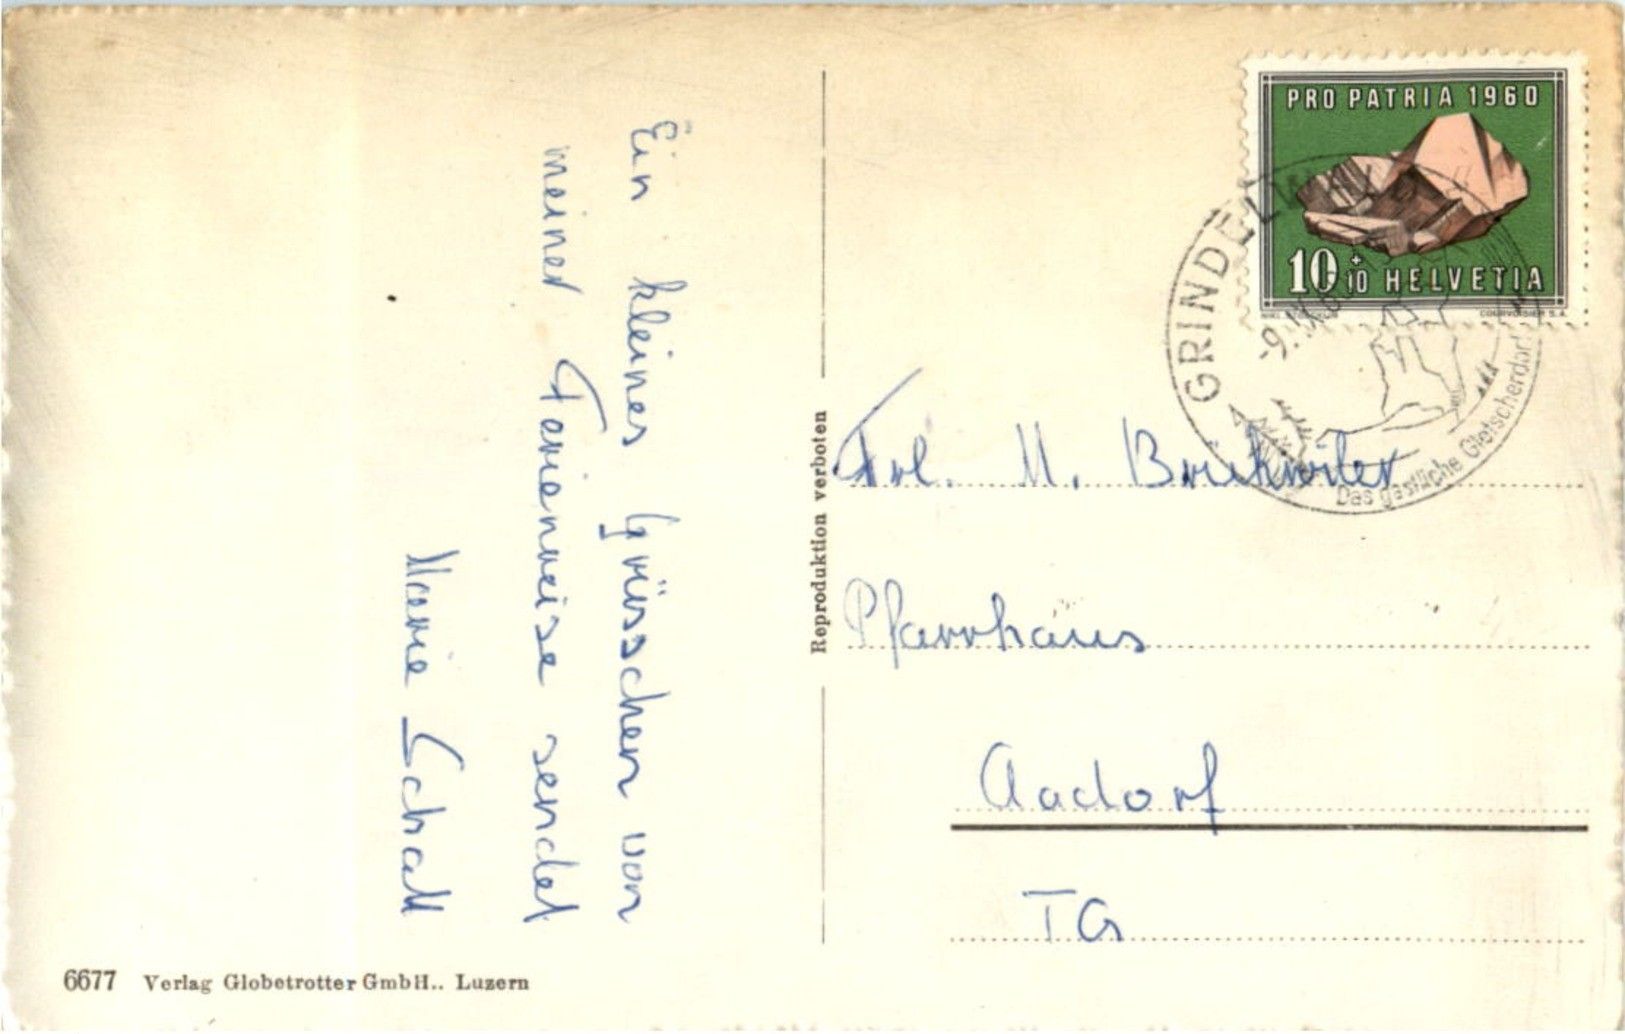 Ein kleines Grüsschen von
meiner Ferienreise sendet
Marie Schall
6677 Verlag Globetrotter GmbH.. Luzern
Reproduktion verboten
PRO PATRIA 1960
10 + 10 HELVETIA
COURVOISIER S.A.
GRINDELWALD
-9.IX.60
Das gastliche Gletscherdorf
Frl. M. Bruhwiler
Pfarrhaus
Aadorf
TG